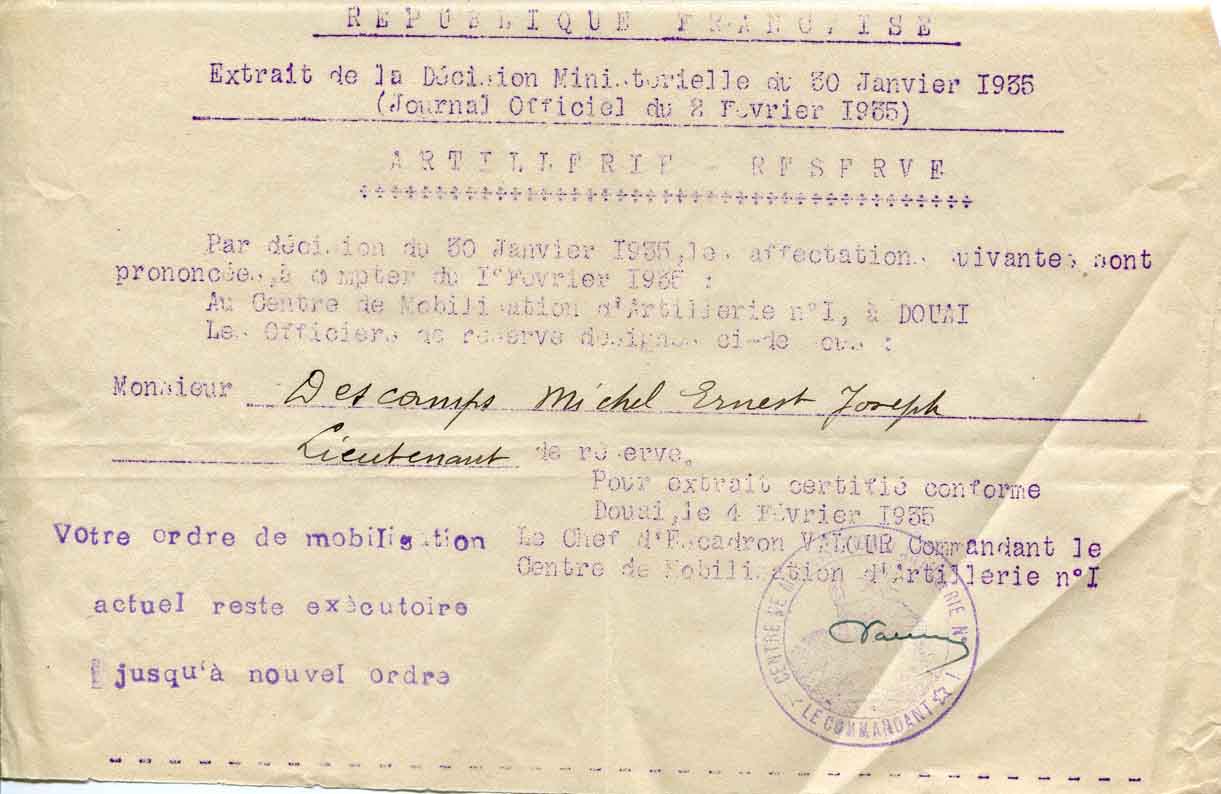 REPUBLIQUE FRANCAISE
Extrait de la Décision Ministerielle du 30 Janvier 1935
(Journal Officiel du 2 Fevrier 1935)
ARTILLERIE - RESERVE
Par décision du 30 Janvier 1935, les affectations suivantes sont
prononcées, à compter du 1º Fevrier 1935 :
Au Centre de Mobilisation d'Artillerie n°I, à DOUAI
Les Officiers de reserve designes ci-dessous :
Monsieur Descamps Michel Ernest Joseph
Lieutenant de réserve.
Pour extrait certifié conforme
Douai, le 4 Février 1935
Votre ordre de mobilisation
actuel reste exècutoire
jusqu'à nouvel ordre
Le Chef d'Escadron VALOUR Commandant le
Centre de Mobilisation d'Artillerie n°I
CENTRE DE MOBILISATION D'ARTILLERIE N° 1
LE COMMANDANT